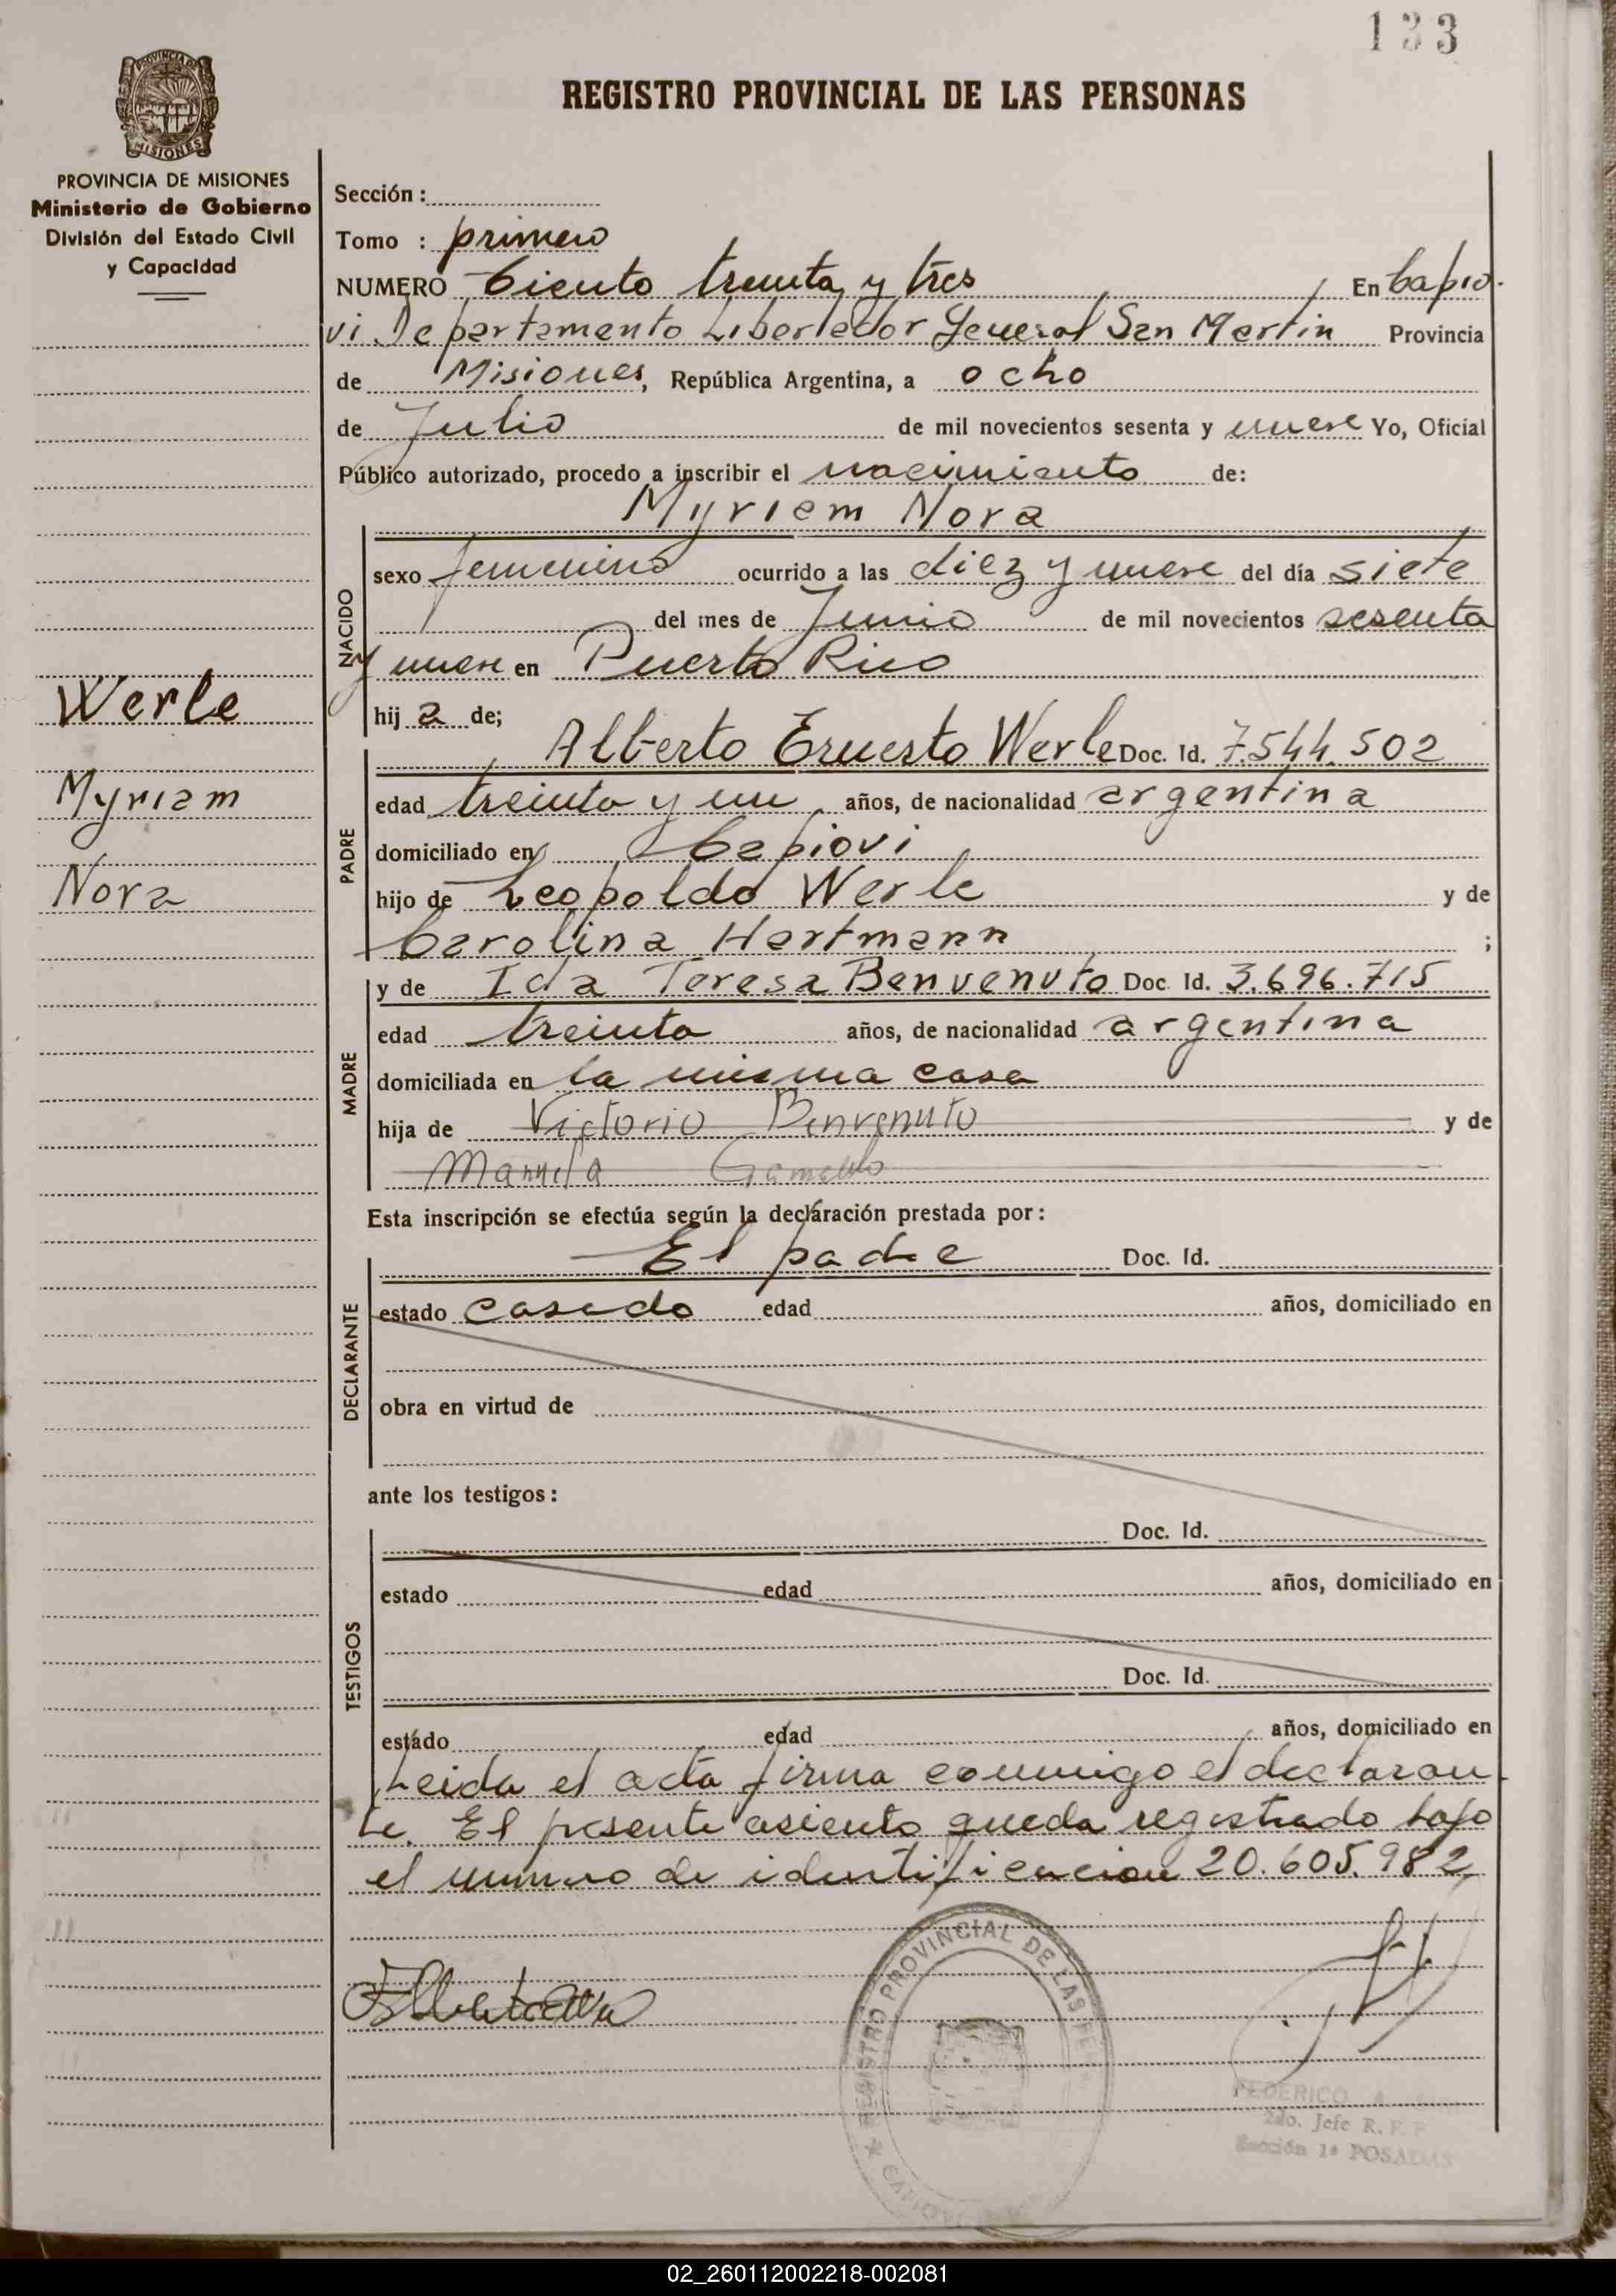 133
REGISTRO PROVINCIAL DE LAS PERSONAS
PROVINCIA DE MISIONES
MISIONES
PROVINCIA DE MISIONES
Ministerio de Gobierno
División del Estado Civil
y Capacidad
Werle
Myriam
Nora
Sección :
Tomo : primero
NUMERO Ciento treinta y tres En Capio-
vi Departamento Libertador General San Martin Provincia
de Misiones, República Argentina, a ocho
de Julio de mil novecientos sesenta y nueve Yo, Oficial
Público autorizado, procedo a inscribir el nacimiento de:
Myriam Nora
NACIDO
sexo femenino ocurrido a las diez y nueve del día siete
del mes de Junio de mil novecientos sesenta
y nueve en Puerto Rico
hij a de;
PADRE
Alberto Ernesto Werle Doc. Id. 7.544.502
edad treinta y un años, de nacionalidad argentina
domiciliado en Capiovi
hijo de Leopoldo Werle y de
Carolina Hartmann ;
MADRE
y de Ida Teresa Benvenuto Doc. Id. 3.696.715
edad treinta años, de nacionalidad argentina
domiciliada en la misma casa
hija de Victorio Benvenuto y de
Manuela
Esta inscripción se efectúa según la declaración prestada por:
DECLARANTE
El padre Doc. Id.
estado casado edad años, domiciliado en
obra en virtud de
ante los testigos:
TESTIGOS
Doc. Id.
estado edad años, domiciliado en
Doc. Id.
estado edad años, domiciliado en
Leida el acta firma conmigo el declaran-
te. El presente asiento queda registrado bajo
el numero de identificacion 20.605.982
REGISTRO PROVINCIAL DE LAS PER
CAPIOVI
FEDERICO A.
2do. Jefe R. P. P
Sección 1ª POSADAS
02_260112002218-002081